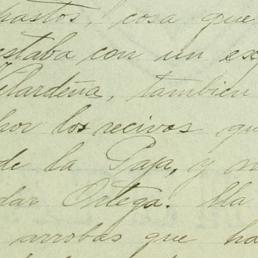 pastos, cosa que
estaba con un ex
Clardeña, tambien
por los recivos qu
de la Papa, y m
dar Ortega. Ma
arrobas que ha